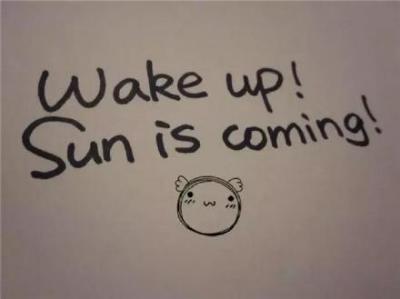 Wake up!
Sun is coming!